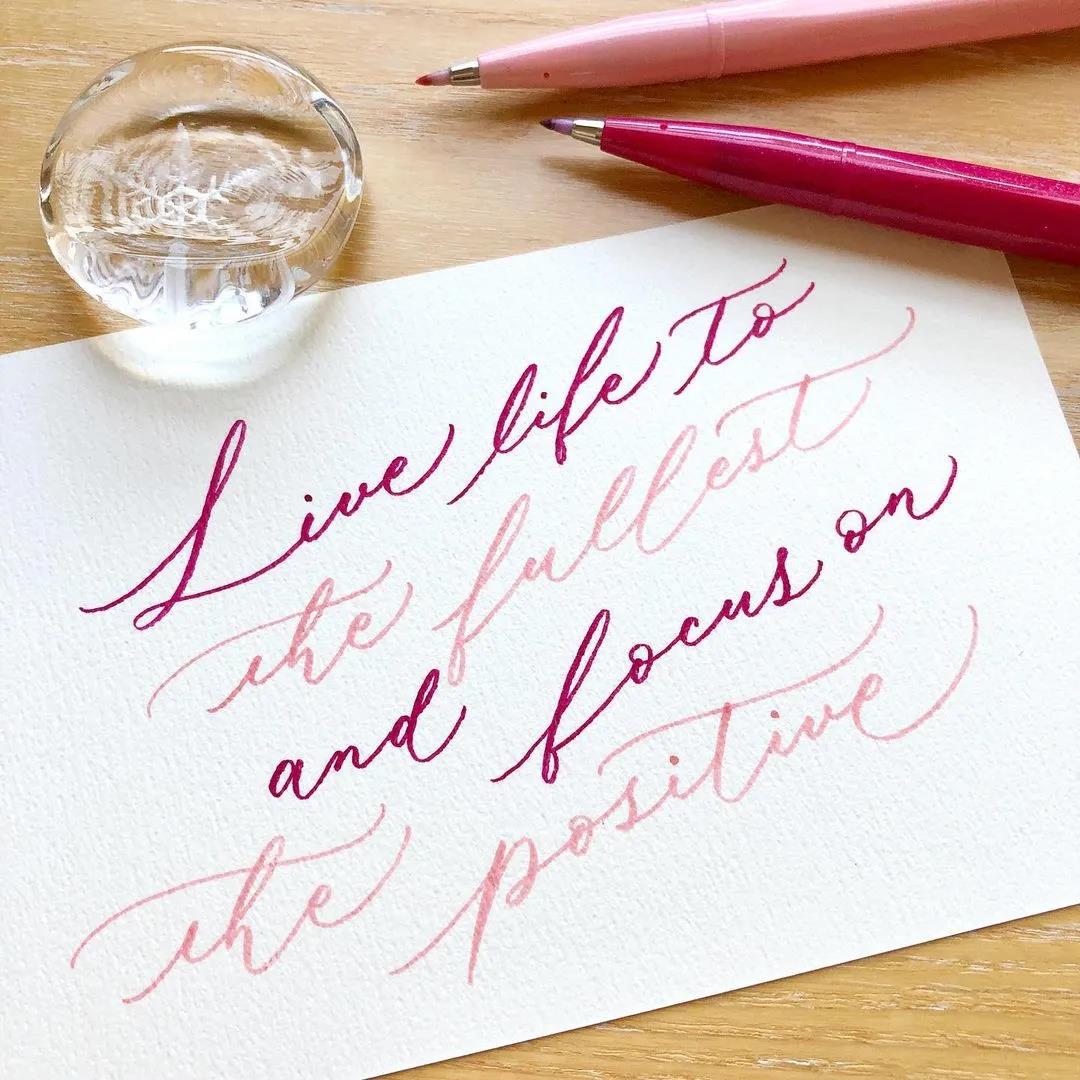 Live life to
the fullest
and focus on
the positive